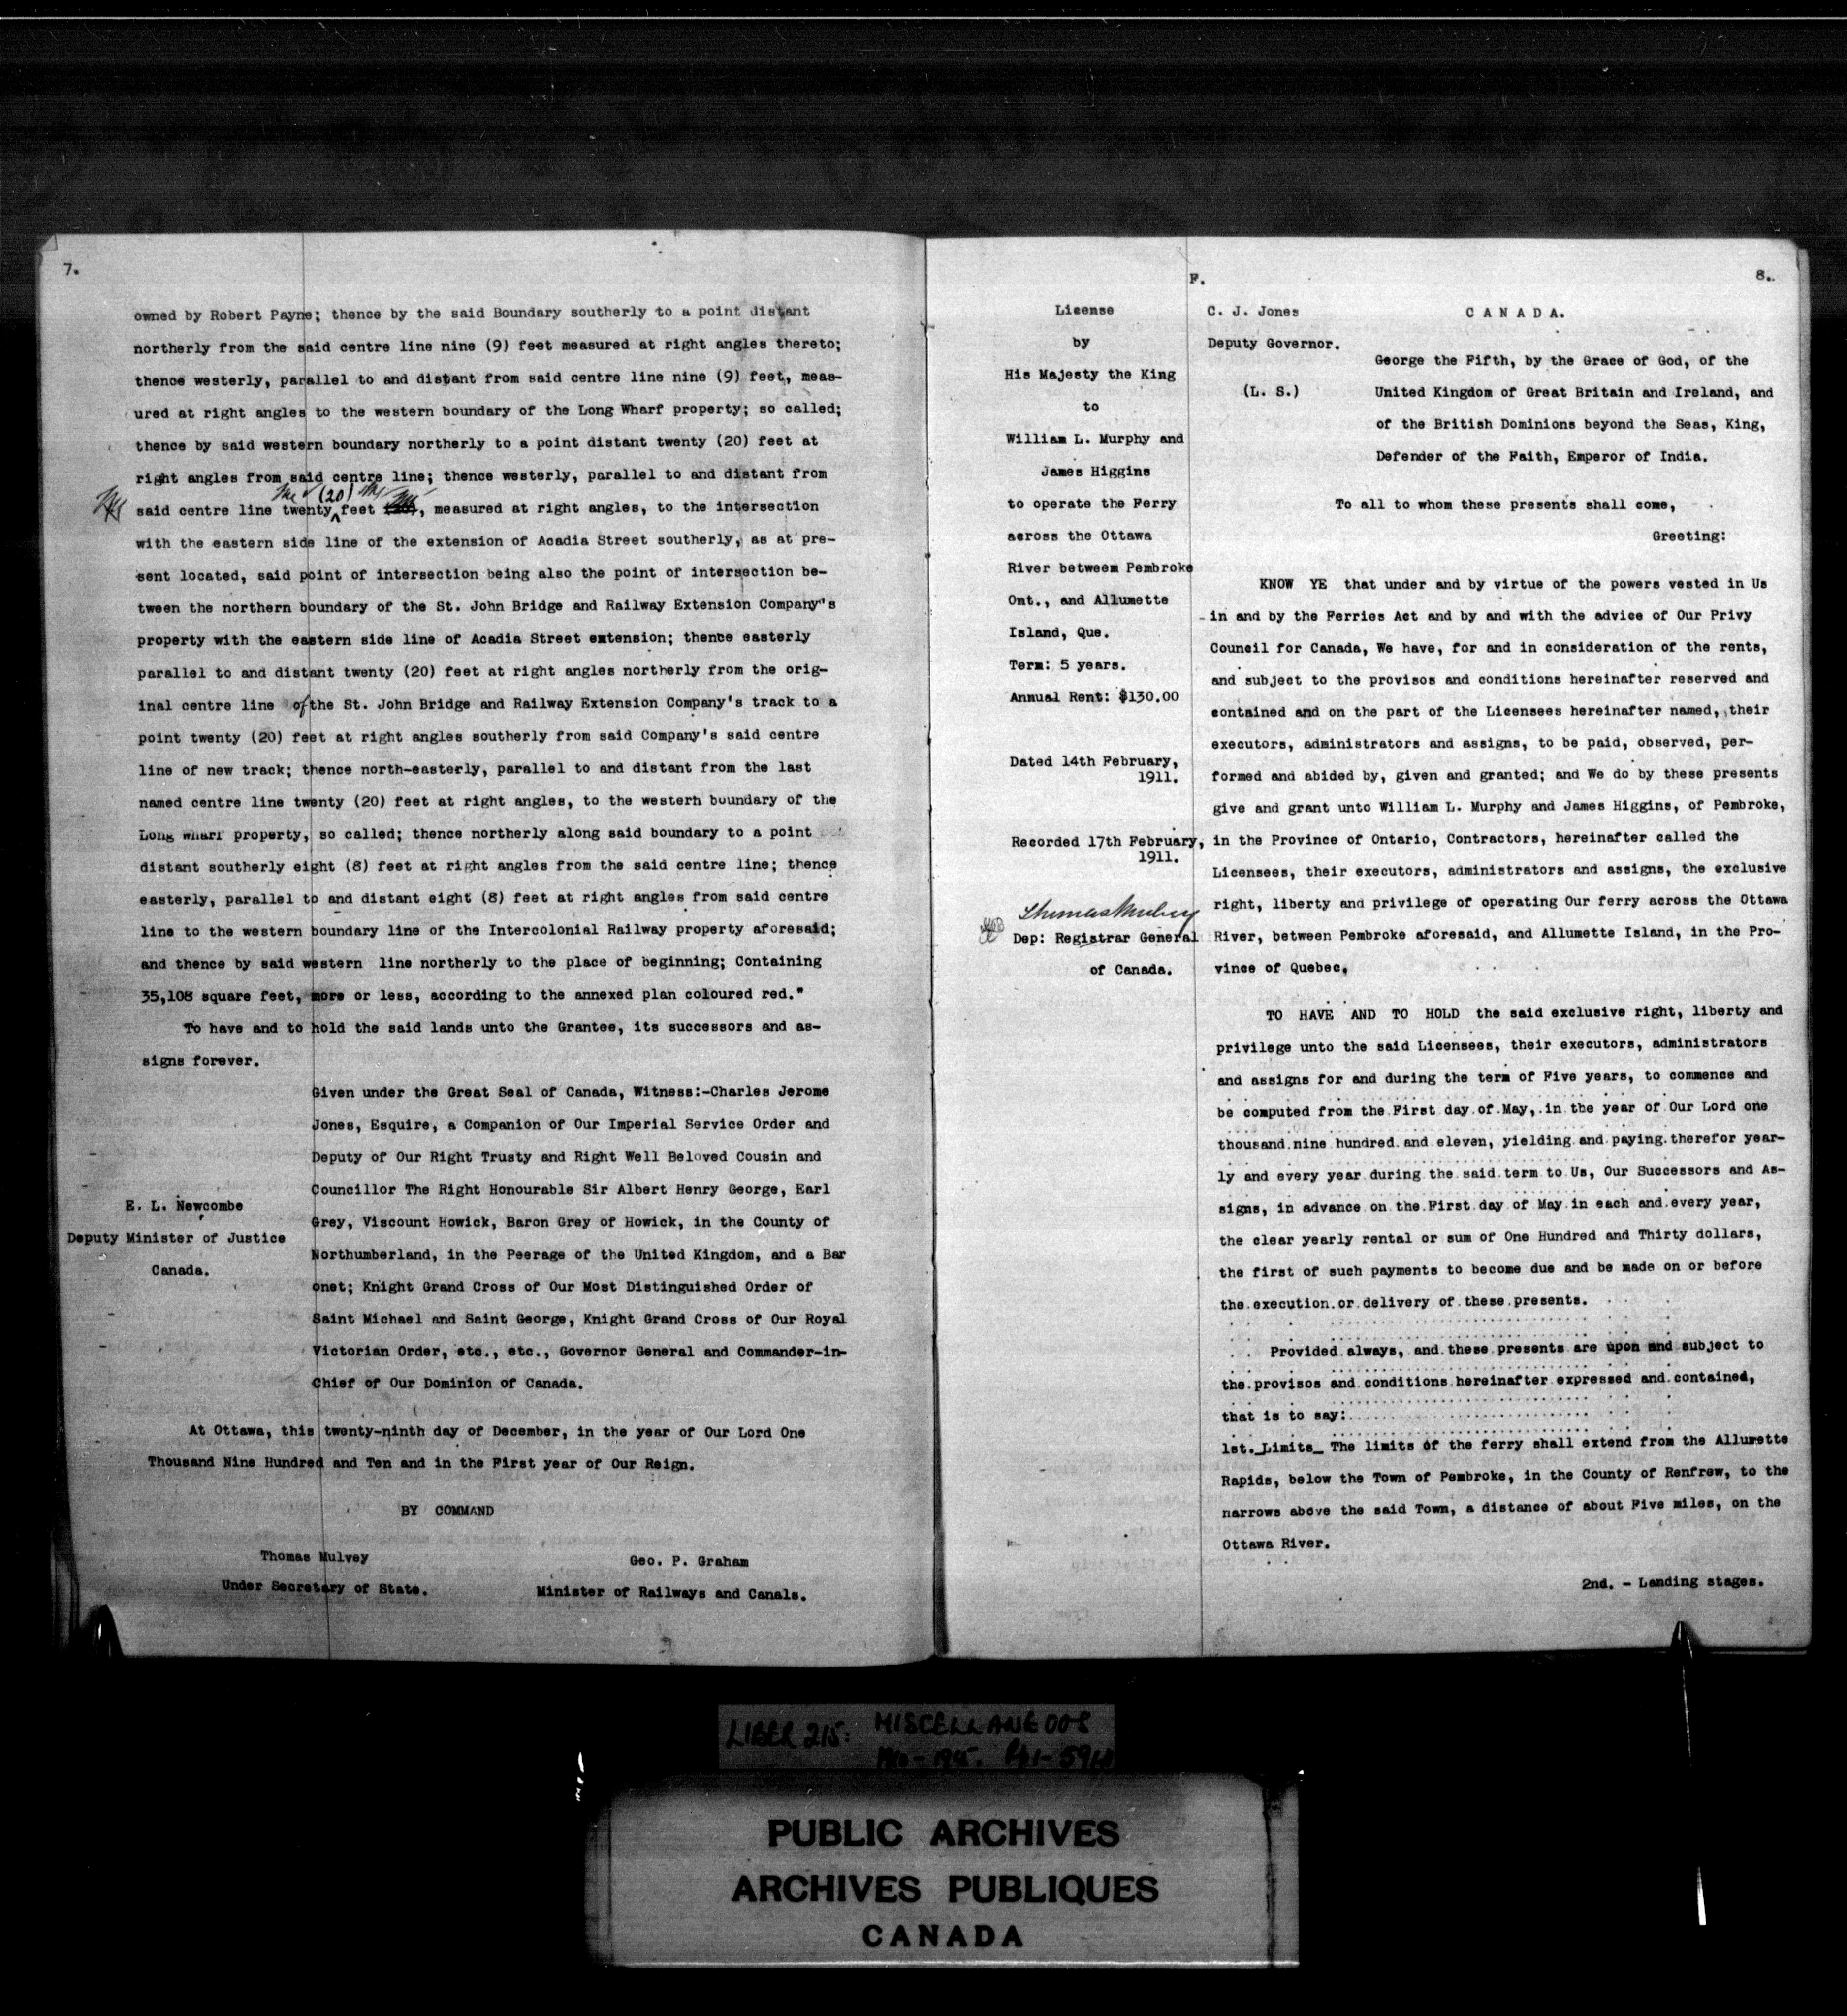 7.
owned by Robert Payne; thence by the said Boundary southerly to a point distant
northerly from the said centre line nine (9) feet measured at right angles thereto;
thence westerly, parallel to and distant from said centre line nine (9) feet, meas-
ured at right angles to the western boundary of the Long Wharf property; so called;
thence by said western boundary northerly to a point distant twenty (20) feet at
right angles from said centre line; thence westerly, parallel to and distant from
(20)
said centre line twenty feet , measured at right angles, to the intersection
with the eastern side line of the extension of Acadia Street southerly, as at pre-
sent located, said point of intersection being also the point of intersection be-
tween the northern boundary of the St. John Bridge and Railway Extension Company"s
property with the eastern side line of Acadia Street extension; thence easterly
parallel to and distant twenty (20) feet at right angles northerly from the orig-
inal centre line of the St. John Bridge and Railway Extension Company's track to a
point twenty (20) feet at right angles southerly from said Company's said centre
line of new track; thence north-easterly, parallel to and distant from the last
named centre line twenty (20) feet at right angles, to the western boundary of the
Long Wharf property, so called; thence northerly along said boundary to a point
distant southerly eight (8) feet at right angles from the said centre line; thence
easterly, parallel to and distant eight (8) feet at right angles from said centre
line to the western boundary line of the Intercolonial Railway property aforesaid;
and thence by said western line northerly to the place of beginning; Containing
35,108 square feet, more or less, according to the annexed plan coloured red."
To have and to hold the said lands unto the Grantee, its successors and as-
signs forever.
Given under the Great Seal of Canada, Witness:-Charles Jerome
Jones, Esquire, a Companion of Our Imperial Service Order and
Deputy of Our Right Trusty and Right Well Beloved Cousin and
Councillor The Right Honourable Sir Albert Henry George, Earl
Grey, Viscount Howick, Baron Grey of Howick, in the County of
Northumberland, in the Peerage of the United Kingdom, and a Bar
onet; Knight Grand Cross of Our Most Distinguished Order of
Saint Michael and Saint George, Knight Grand Cross of Our Royal
Victorian Order, etc., etc., Governor General and Commander-in-
Chief of Our Dominion of Canada.
E. L. Newcombe
Deputy Minister of Justice
Canada.
At Ottawa, this twenty-ninth day of December, in the year of Our Lord One
Thousand Nine Hundred and Ten and in the First year of Our Reign.
BY COMMAND
Thomas Mulvey
Under Secretary of State.
Geo. P. Graham
Minister of Railways and Canals.
F.
8.
License
by
His Majesty the King
to
William L. Murphy and
James Higgins
to operate the Ferry
across the Ottawa
River betweem Pembroke
Ont., and Allumette
Island, Que.
Term: 5 years.
Annual Rent: $130.00
Dated 14th February,
1911.
Recorded 17th February,
1911.
Thomas Mulvey
Dep: Registrar General
of Canada.
C. J. Jones
Deputy Governor.
(L. S.)
CANADA.
George the Fifth, by the Grace of God, of the
United Kingdom of Great Britain and Ireland, and
of the British Dominions beyond the Seas, King,
Defender of the Faith, Emperor of India.
To all to whom these presents shall come,
Greeting:
KNOW YE that under and by virtue of the powers vested in Us
in and by the Ferries Act and by and with the advice of Our Privy
Council for Canada, We have, for and in consideration of the rents,
and subject to the provisos and conditions hereinafter reserved and
contained and on the part of the Licensees hereinafter named, their
executors, administrators and assigns, to be paid, observed, per-
formed and abided by, given and granted; and We do by these presents
give and grant unto William L. Murphy and James Higgins, of Pembroke,
in the Province of Ontario, Contractors, hereinafter called the
Licensees, their executors, administrators and assigns, the exclusive
right, liberty and privilege of operating Our ferry across the Ottawa
River, between Pembroke aforesaid, and Allumette Island, in the Pro-
vince of Quebec.
TO HAVE AND TO HOLD the said exclusive right, liberty and
privilege unto the said Licensees, their executors, administrators
and assigns for and during the term of Five years, to commence and
be computed from the First day of May, in the year of Our Lord one
thousand nine hundred and eleven, yielding and paying therefor year-
ly and every year during the said term to Us, Our Successors and As-
signs, in advance on the First day of May in each and every year,
the clear yearly rental or sum of One Hundred and Thirty dollars,
the first of such payments to become due and be made on or before
the execution or delivery of these presents.
Provided always, and these presents are upon and subject to
the provisos and conditions hereinafter expressed and contained,
that is to say:
1st._Limits_ The limits of the ferry shall extend from the Allumette
Rapids, below the Town of Pembroke, in the County of Renfrew, to the
narrows above the said Town, a distance of about Five miles, on the
Ottawa River.
2nd. - Landing stages.
LIBER 215: MISCELLANEOUS
PUBLIC ARCHIVES
ARCHIVES PUBLIQUES
CANADA